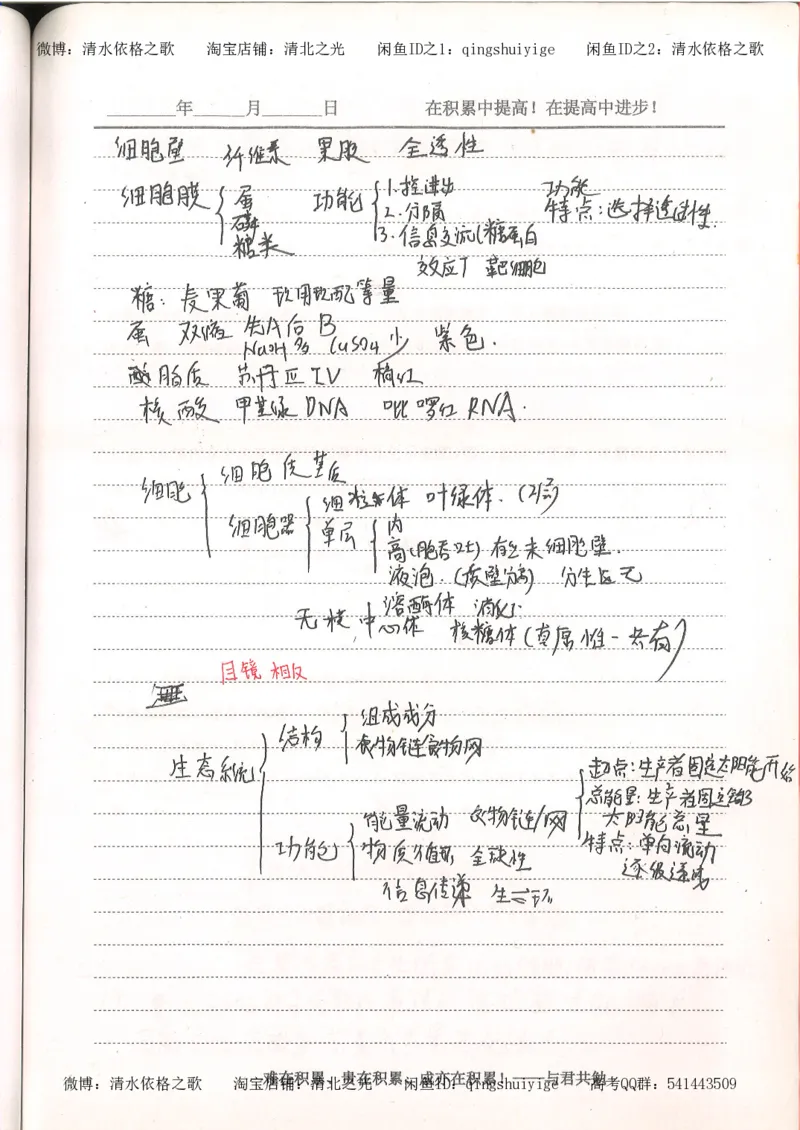 微博：清水依格之歌 淘宝店铺：清北之光 闲鱼ID之1：qingshuiyige 闲鱼ID之2：清水依格之歌
年 月 日 在积累中提高！在提高中进步！
细胞壁 纤维素 果胶 全透性
细胞膜 蛋 磷 糖类 功能 1.控进出 2.分隔 3.信息交流(糖蛋白 功能特点：选择透过性.
效应T 靶细胞
糖：麦果葡 现用现配等量
蛋 双缩 先A后B 紫色.
NaOH多 CuSO4少
脂质 苏丹Ⅲ Ⅳ 橘红
核酸 甲基绿DNA 吡啰红RNA.
细胞 细胞质基质
细胞器 线粒体 叶绿体.(2层)
单层 内
高(胞吞吐)有丝末细胞壁.
液泡.(质壁分离) 分生区无
溶酶体 消化
无核,中心体 核糖体(真原唯一共有)
目镜 相反
生态系统 结构 组成成分
食物链食物网
功能 能量流动 食物链/网 起点：生产者固定太阳能开始
总能量：生产者固定的太阳能总量
特点：单向流动
逐级递减
物质循环 全球性
信息传递 生⇌环
难在积累！贵在积累！成亦在积累！——与君共勉
微博：清水依格之歌 淘宝店铺：清北之光 闲鱼ID：qingshuiyige 高考QQ群：541443509